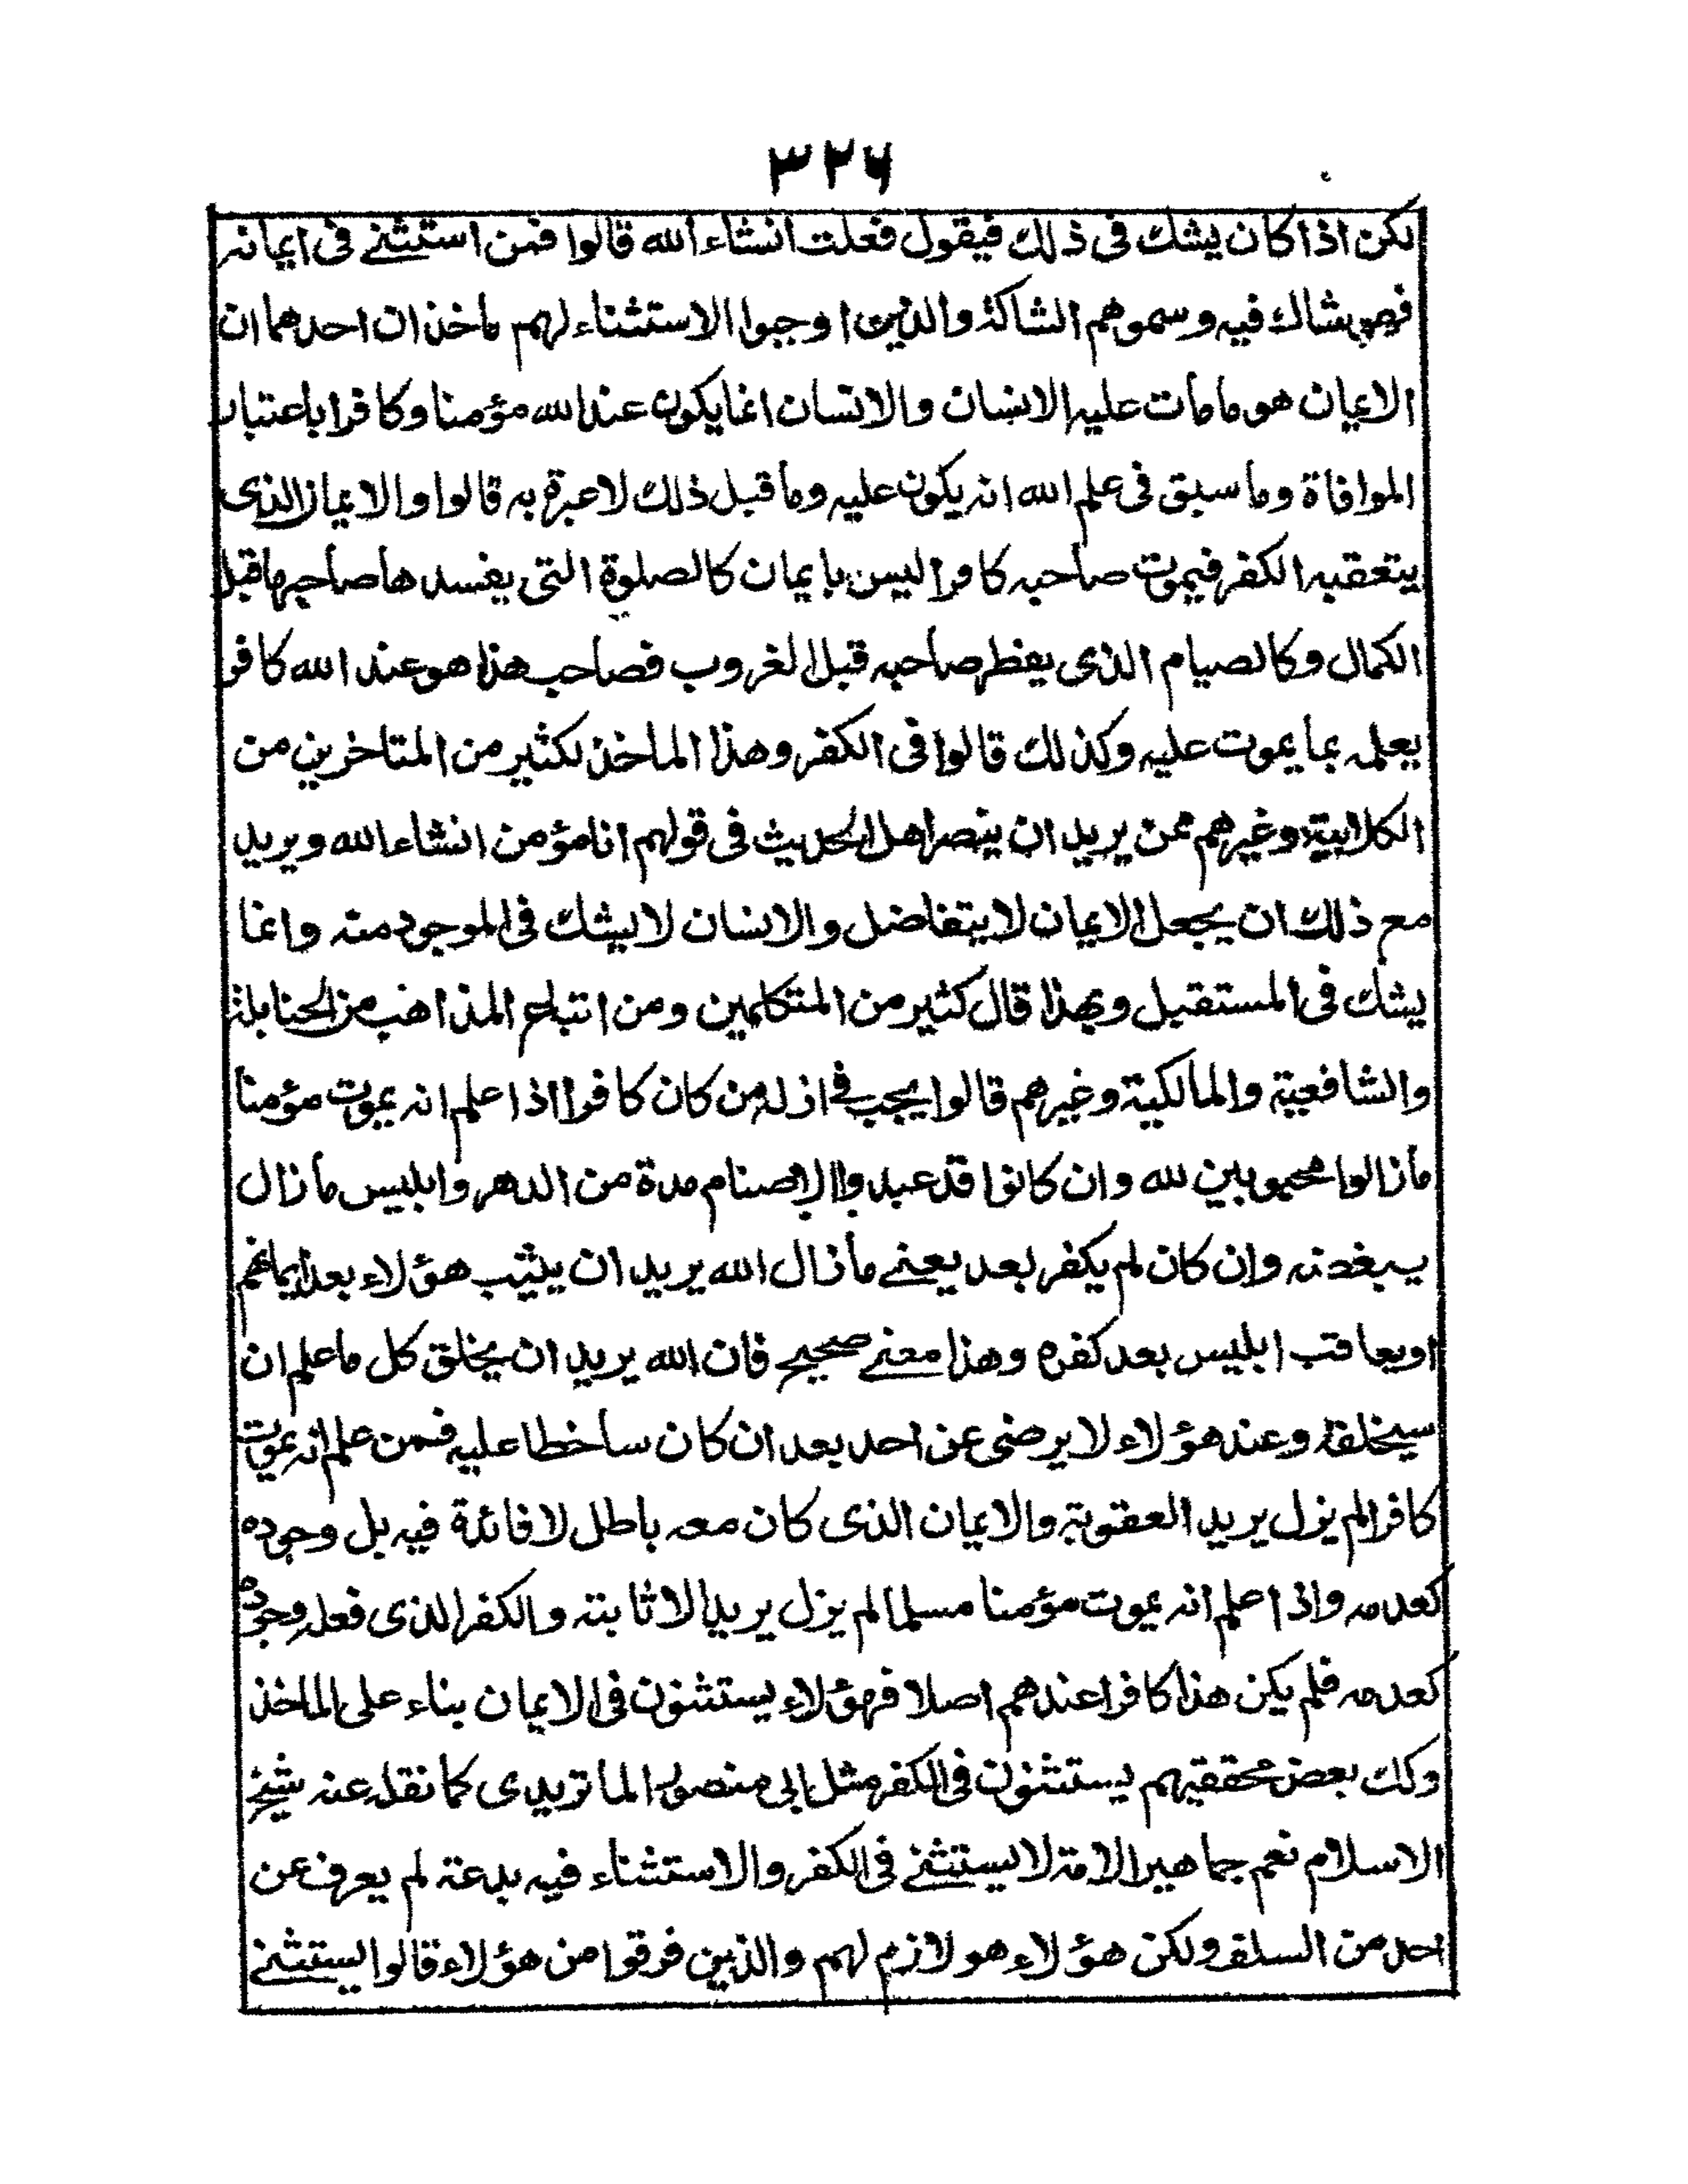 ٣٢٦
لكن اذا كان يشك فى ذلك فيقول فعلت انشاء الله قالوا فمن استثنے فى ايمانه
فهو شاك فيه وسموهم الشاكة والذين اوجبوا الاستثناء لهم مأخذان احدهما ان
الايمان هو مامات عليه الانسان والانسان انما يكون عند الله مؤمنا وكافرا باعتبار
الموافاة وما سبق فى علم الله انه يكون عليه وما قبل ذلك لا عبرة به قالوا والايمان الذى
يتعقبه الكفر فيموت صاحبه كافرا ليس بايمان كالصلوة التى يفسدها صاحبها قبل
الكمال وكالصيام الذى يفطر صاحبه قبل الغروب فصاحب هذا هو عند الله كافر
يعلمه بما يموت عليه وكذلك قالوا فى الكفر وهذا الماخذ لكثير من المتاخرين من
الكلابية وغيرهم ممن يريد ان ينصر اهل الحديث فى قولهم انا مؤمن انشاء الله ويريد
مع ذلك ان يجعل الايمان لا يتفاضل والانسان لا يشك فى الموجود منه وانما
يشك فى المستقبل وبهذا قال كثير من المتكلمين ومن اتباع المذاهب من الحنابلة
والشافعية والمالكية وغيرهم قالوا يجب فے ازله من كان كافرا اذا علم انه يموت مؤمنا
مازالوا محبوبين لله وان كانوا قد عبدوا الاصنام مدة من الدهر وابليس مازال
يبغضه وان كان لم يكفر بعد يعنے مازال الله يريد ان يثيب هؤلاء بعد ايمانهم
او يعاقب ابليس بعد كفره وهذا معنے صحيح فان الله يريد ان يخلق كل ما علم ان
سيخلقه وعند هؤلاء لا يرضى عن احد بعد ان كان ساخطا عليه فمن علم انه يموت
كافرا لم يزل يريد العقوبة والايمان الذى كان معه باطل لا فائدة فيه بل وجوده
كعدمه واذا علم انه يموت مؤمنا مسلما لم يزل يريد الاثابته والكفر الذى فعله وجوده
كعدمه فلم يكن هذا كافرا عندهم اصلا فهؤلاء يستثنون فى الايمان بناء على الماخذ
وكك بعض محققيهم يستثنون فى الكفر مثل ابى منصور الماتريدى كما نقله عنه شيخ
الاسلام نعم جماهير الامة لا يستثنے فى الكفر والاستثناء فيه بدعة لم يعرف عن
احد من السلف ولكن هؤلاء هو لازم لهم والذين فرقوا من هؤلاء قالوا يستثنے